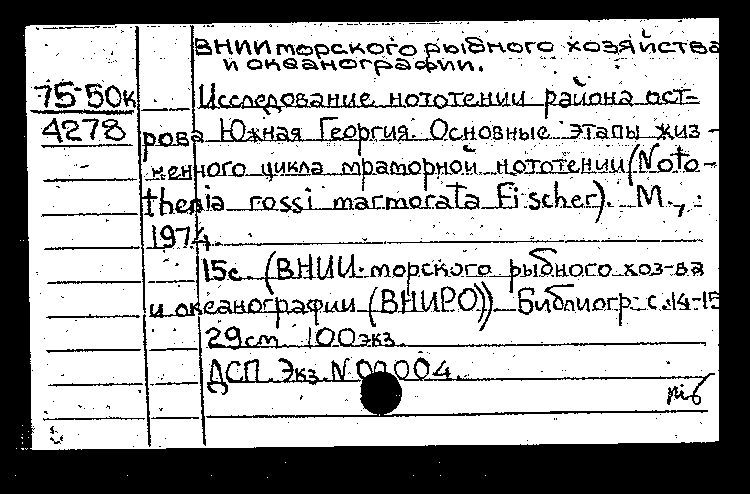 ВНИИ морского рыбного хозяйства
и океанографии.
75-50к
4278
Исследование нототении района ост-
рова Южная Георгия. Основные этапы жиз-
ненного цикла мраморной нототении (Noto-
thenia rossi marmorata Fischer). М.,:
1974.
15с. (ВНИИ морского рыбного хоз-ва
и океанографии (ВНИРО)). Библиогр: с.14-15
29см 100экз.
ДСП. Экз. N 00004.